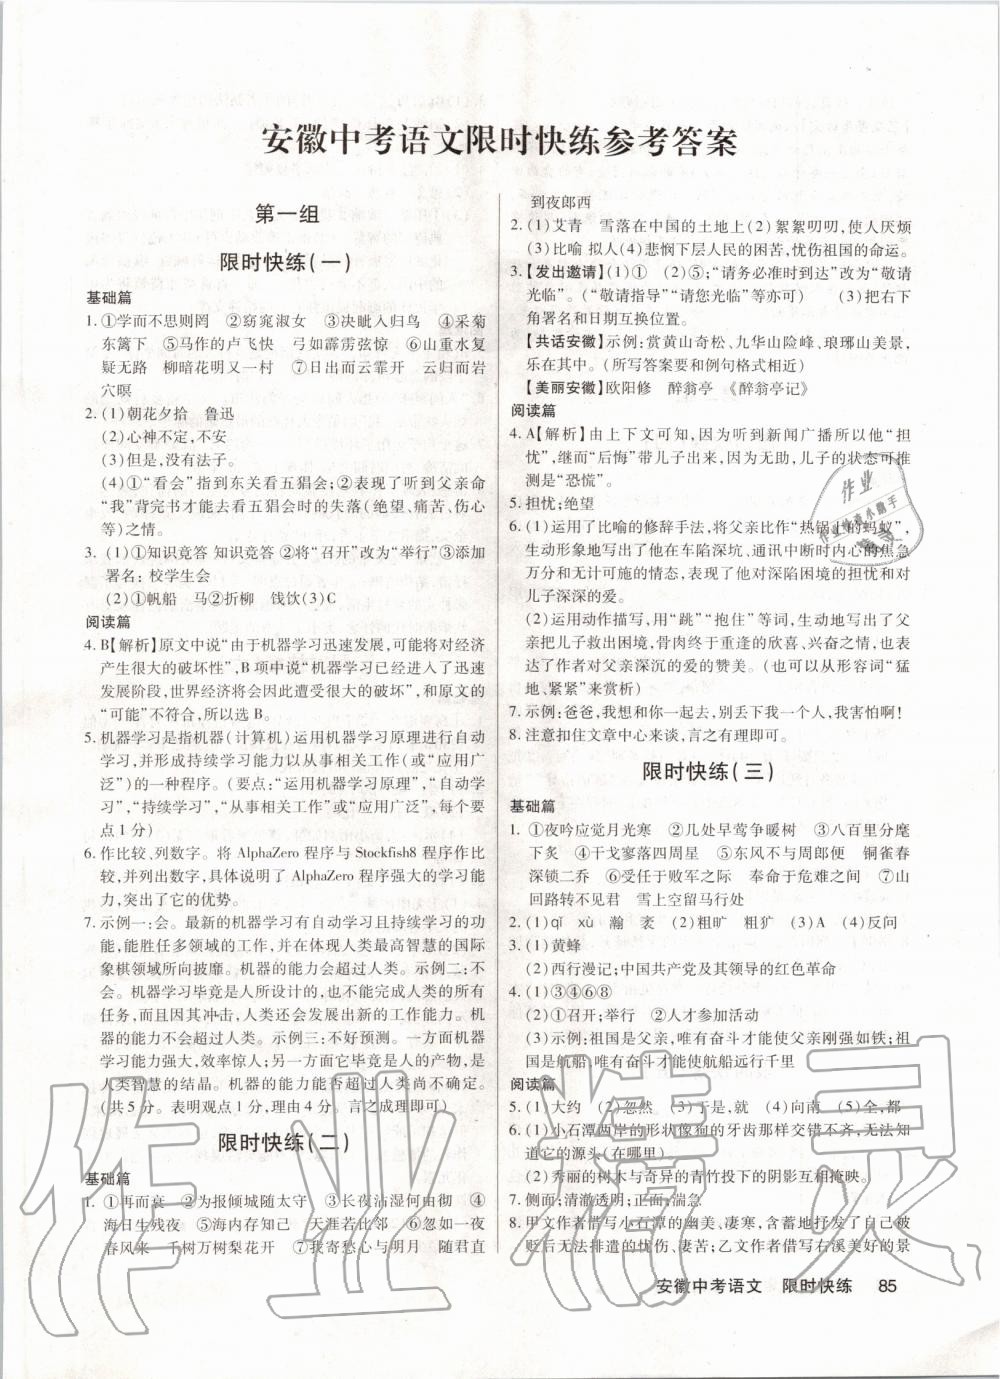 安徽中考语文限时快练参考答案
第一组
限时快练(一)
基础篇
1. ①学而不思则罔 ②窈窕淑女 ③决眦入归鸟 ④采菊
东篱下 ⑤马作的卢飞快 弓如霹雳弦惊 ⑥山重水复
疑无路 柳暗花明又一村 ⑦日出而云霏开 云归而岩
穴暝
2. (1)朝花夕拾 鲁迅
(2)心神不定,不安
(3)但是,没有法子。
(4)①“看会”指到东关看五猖会;②表现了听到父亲命
“我”背完书才能去看五猖会时的失落(绝望、痛苦、伤心
等)之情。
3. (1)①知识竟答 知识竞答 ②将“召开”改为“举行”③添加
署名: 校学生会
(2)①帆船 马②折柳 饯饮(3)C
阅读篇
4. B【解析】原文中说“由于机器学习迅速发展,可能将对经济
产生很大的破坏性”,B项中说“机器学习已经进入了迅速
发展阶段,世界经济将会因此遭受很大的破坏”,和原文的
“可能”不符合,所以选B。
5. 机器学习是指机器(计算机)运用机器学习原理进行自动
学习,并形成持续学习能力以从事相关工作(或“应用广
泛”)的一种程序。(要点:“运用机器学习原理”,“自动学
习”,“持续学习”,“从事相关工作”或“应用广泛”,每个要
点1分)
6. 作比较、列数字。将AlphaZero程序与Stockfish8程序作比
较,并列出数字,具体说明了AlphaZero程序强大的学习能
力,突出了它的优势。
7. 示例一:会。最新的机器学习有自动学习且持续学习的功
能,能胜任多领域的工作,并在体现人类最高智慧的国际
象棋领域所向披靡。机器的能力会超过人类。示例二:不
会。机器学习毕竟是人所设计的,也不能完成人类的所有
任务,而且因其冲击,人类还会发展出新的工作能力。机
器的能力不会超过人类。示例三:不好预测。一方面机器
学习能力强大,效率惊人;另一方面它毕竟是人的产物,是
人类智慧的结晶。机器的能力能否超过人类尚不确定。
(共5分。表明观点1分,理由4分。言之成理即可)
限时快练(二)
基础篇
1. ①再而衰 ②为报倾城随太守 ③长夜沾湿何由彻 ④
海日生残夜 ⑤海内存知己 天涯若比邻 ⑥忽如一夜
春风来 千树万树梨花开 ⑦我寄愁心与明月 随君直
到夜郎西
2. (1)艾青 雪落在中国的土地上(2)絮絮叨叨,使人厌烦
(3)比喻 拟人(4)悲悯下层人民的困苦,忧伤祖国的命运。
3. 【发出邀请】(1)① (2)⑤;“请务必准时到达”改为“敬请
光临”。(“敬请指导”“请您光临”等亦可) (3)把右下
角署名和日期互换位置。
【共话安徽】示例:赏黄山奇松、九华山险峰、琅琊山美景,
乐在其中。(所写答案要和例句格式相近)
【美丽安徽】欧阳修 醉翁亭 《醉翁亭记》
阅读篇
4. A【解析】由上下文可知,因为听到新闻广播所以他“担
忧”,继而“后悔”带儿子出来,因为无助,儿子的状态可推
测是“恐慌”。
5. 担忧;绝望
6. (1)运用了比喻的修辞手法,将父亲比作“热锅上的蚂蚁”,
生动形象地写出了他在车陷深坑、通讯中断时内心的焦急
万分和无计可施的情态,表现了他对深陷困境的担忧和对
儿子深深的爱。
(2)运用动作描写,用“跳”“抱住”等词,生动地写出了父亲
把儿子救出困境,骨肉终于重逢的欣喜、兴奋之情,也表
达了作者对父亲深沉的爱的赞美。(也可以从形容词“猛
地、紧紧”来赏析)
7. 示例:爸爸,我想和你一起去,别丢下我一个人,我害怕啊!
8. 注意扣住文章中心来谈,言之有理即可。
限时快练(三)
基础篇
1. ①夜吟应觉月光寒 ②几处早莺争暖树 ③八百里分麾
下炙 ④干戈寥落四周星 ⑤东风不与周郎便 铜雀春
深锁二乔 ⑥受任于败军之际 奉命于危难之间 ⑦山
回路转不见君 雪上空留马行处
2. (1)qǐ xù 瀚 袤 (2)粗旷 粗犷 (3)A (4)反问
3. (1)黄蜂
(2)西行漫记;中国共产党及其领导的红色革命
4. (1)③④⑥⑧
(2)①召开;举行 ②人才参加活动
(3)示例:祖国是父亲,唯有奋斗才能使父亲刚强如铁;祖
国是航船,唯有奋斗才能使航船远行千里
阅读篇
5. (1)大约 (2)忽然 (3)最 (4)向南 (5)全,都
6. (1)小石潭两岸的形状像狗的牙齿那样交错不齐,无法知
道它的源头(在哪里)。
(2)秀丽的树木与奇异的青竹投下的阴影互相掩映。
7. 侧面;清澈透明;正面;湍急
8. 甲文作者借写小石潭的幽美、凄寒,含蓄地抒发了自己被
贬后无法排遣的忧伤、凄苦;乙文作者借写右溪美好的景
安徽中考语文 限时快练 85
作业精灵